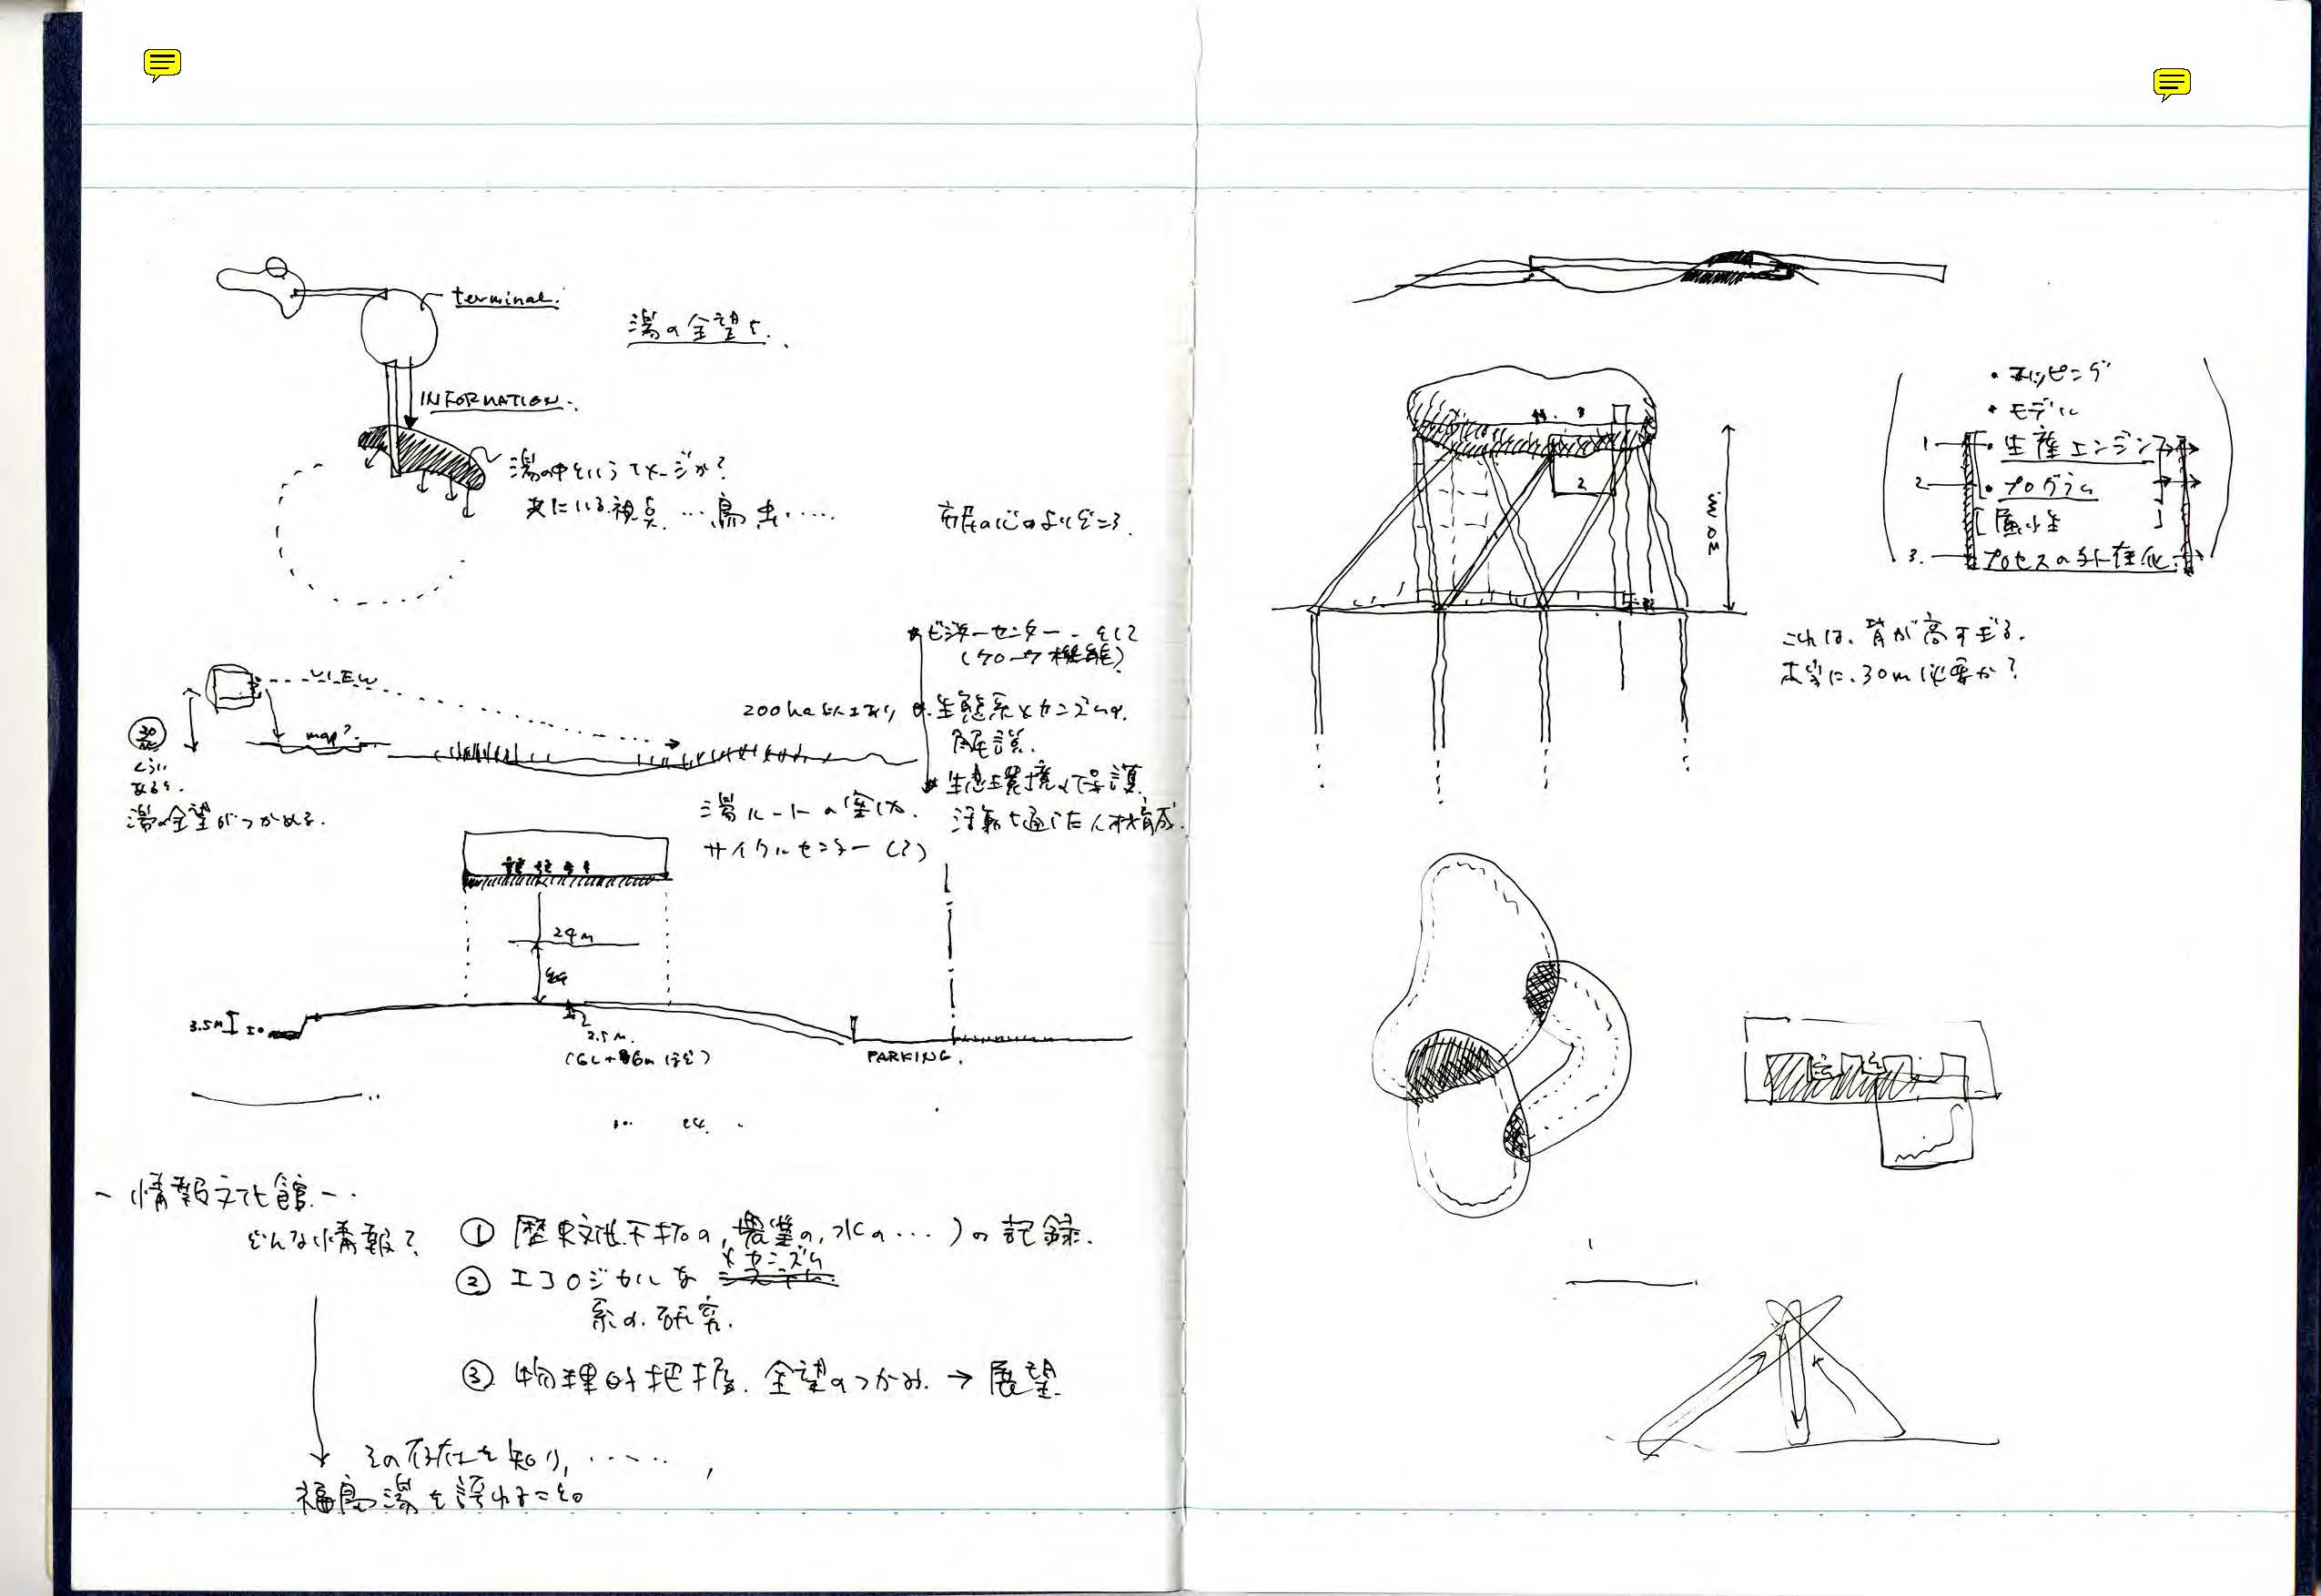 terminal.
潟の全望を.
INFORMATION.
潟の中というイメージか?
夫にいる視点. … 鳥 虫 .....
市民の心のよりどころ.
ビジターセンター. そして
VIEW
200ha以上あり
生態系メカニズムの.
解説.
map?
30
くらい
あると.
潟の全望がつかめる.
生態環境の保護.
活動を通じた人材育成.
潟ルートの
サイクルセンター(?)
24m
3.5M
2.5M.
(GL+6mほど)
PARKING.
24.
- 情報文化館 -.
どんな情報?
① 歴史文化.干拓の,農業の,水の...)の記録.
② エコロジカルな メカニズム
系の.研究.
③ 物理的把握. 全望のつかみ. → 展望.
その存在を知り, ......,
福島潟を誇れること。
・マッピング
・モデル
1 ・生産エンジン
2 ・プログラム
3. プロセスの外在化
3
2
30M
これは、背が高すぎる.
本当に.30m必要か?